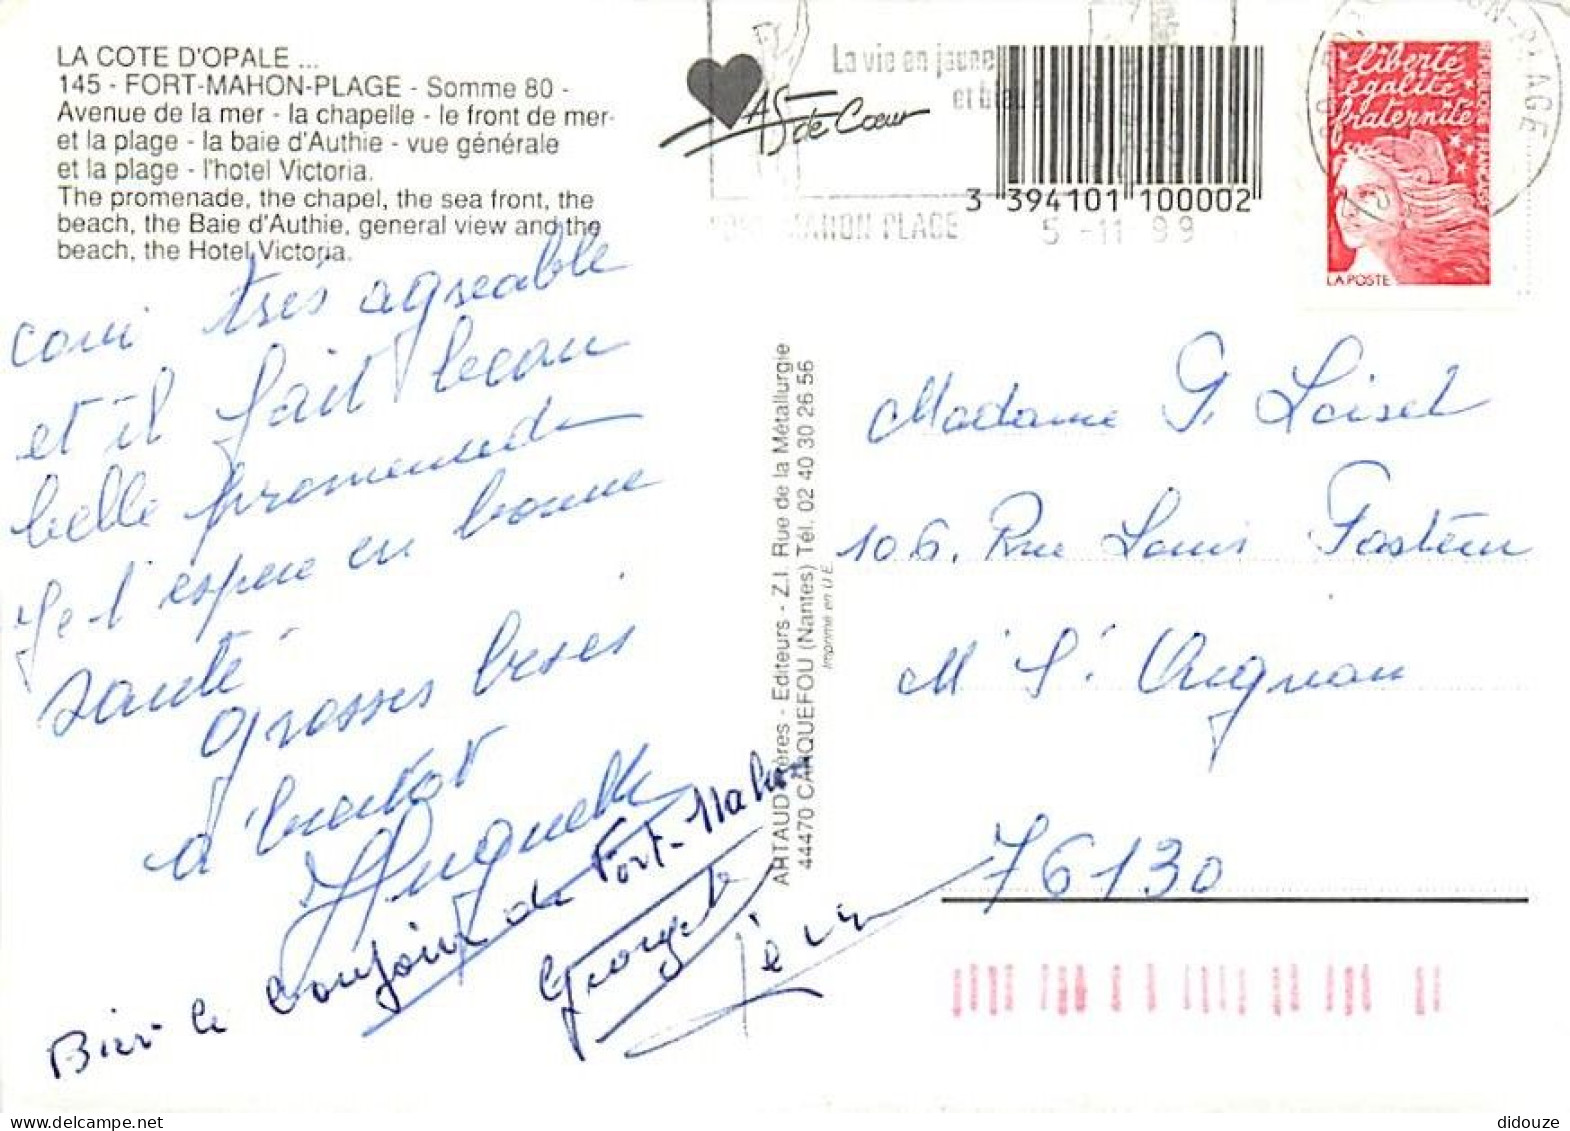 LA COTE D'OPALE ...
145 - FORT-MAHON-PLAGE - Somme 80 -
Avenue de la mer - la chapelle - le front de mer
et la plage - la baie d'Authie - vue générale
et la plage - l'hotel Victoria.
The promenade, the chapel, the sea front, the
beach, the Baie d'Authie, general view and the
beach, the Hotel Victoria.
très agréable
et il fait beau
belle promenade
Je t'espère en bonne
santé
grosses bises
à bientôt
Huguette
Bien le bonjour de Fort-Mahon
Georgette
ARTAUD Frères - Editeurs - Z.I. Rue de la Métallurgie
44470 CARQUEFOU (Nantes) Tél. 02 40 30 26 56
Imprimé en U.E.
AS de Cœur
La vie en jaune
et bleu
3 394101 100002
MAHON PLAGE
5 -11 99
liberté
égalité
fraternité
LA POSTE
Madame G. Loisel
106. Rue Louis Pasteur
Mt St Aignan
76130
didouze